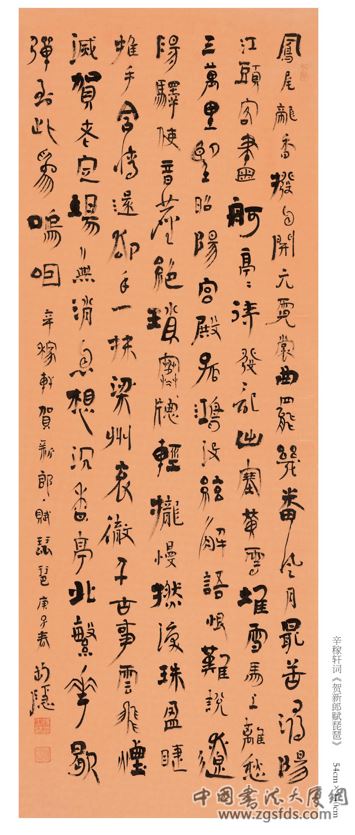 鳳尾龍香撥自開元霓裳曲罷幾番風月最苦潯陽
江頭客畫舸亭〻待發記出塞黃雲堆雪馬上離愁
三萬里望昭陽宮殿孤鴻沒絃解語恨難說遼
陽驛使音塵絕瑣窗寒輕攏慢撚淚珠盈睫
推手含情還卻手一抹梁州哀徹千古事雲飛煙
滅賀老定場無消息想沉香亭北繁華歇
彈到此為嗚咽 辛稼軒賀新郎賦琵琶 庚子春
辛稼轩词《贺新郎赋琵琶》 54cm
中国书法大厦网
www.zgsfds.com